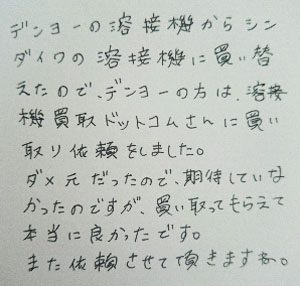 デンヨーの溶接機からシン
ダイワの溶接機に買い替
えたので、デンヨーの方は、溶接
機買取ドットコムさんに買い
取り依頼をしました。
ダメ元だったので、期待していな
かったのですが、買い取ってもらえて
本当に良かったです。
また依頼させて頂きますね。